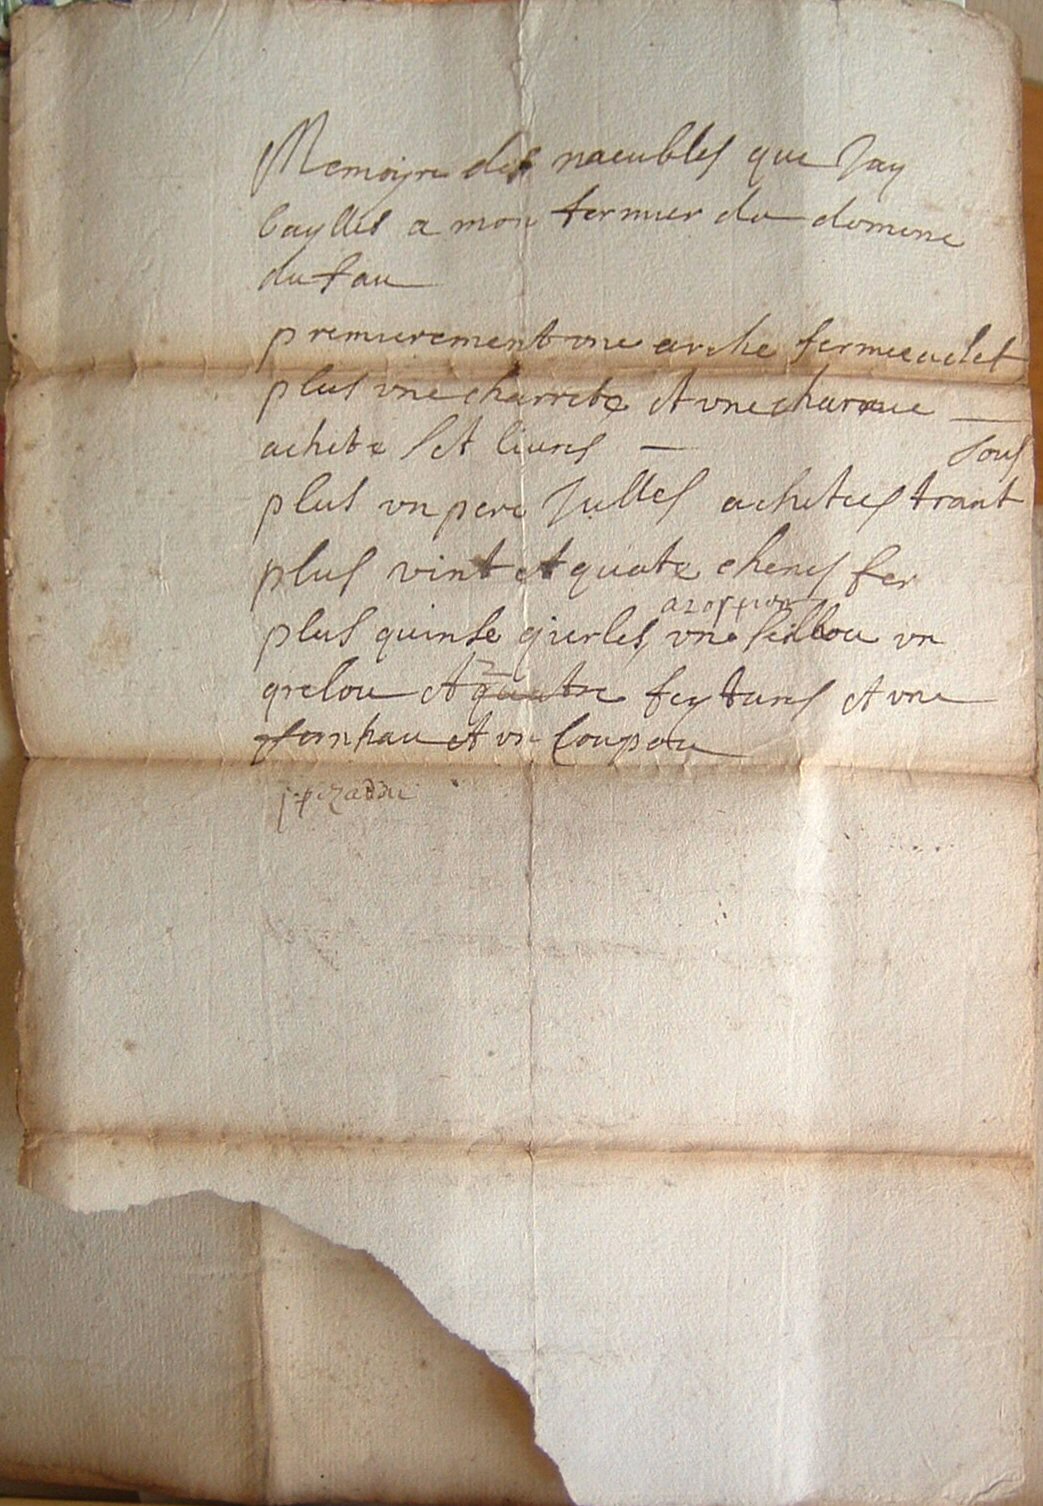 Memoyre des maeubles que Jay
baylles a mon fermier du domene
du fau
premierement vne arche fermee a clef
plus vne charrete et vne charrue
achete set liures — sous
plus vn pere Julles achetees trant
plus vint et quate chenes fer
plus quinse gierles vne vn
grelou et quatre feytures et vne
et vn coupou